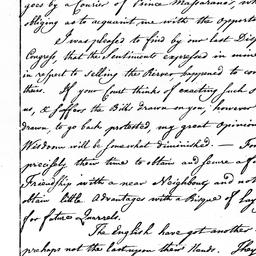 goes by a Courier of Prince Masserano, wh
obliging as to acquaint me with the opportu
I was pleased to find by our last Disp
Congress, that the Sentiments expressed in mine
in respect to selling the River, happened to co
theirs. If your Court thinks of exacting such a
us, & suffers the Bills drawn on you, however
drawn, to go back protested, my great Opinion
Wisdom will be somewhat diminished. — For
precisely their time to obtain and secure a f
Friendship with a near Neighbour; and not
obtain little Advantages with a Risque of lay
for future Quarrels.
The English have got another
perhaps not the last upon their Hands. They